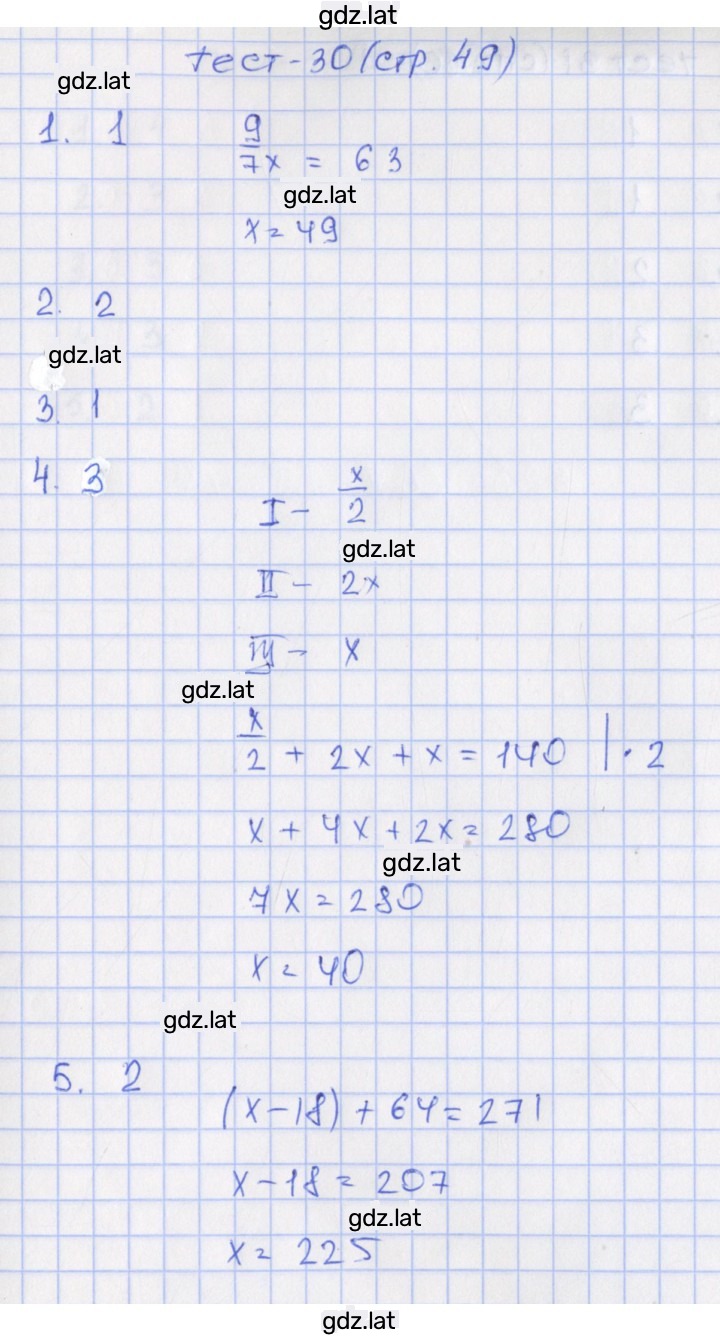 gdz.lat
тест-30 (стр. 49)
gdz.lat
1. 1
9/7x = 63
gdz.lat
x = 49
2. 2
gdz.lat
3. 1
4. 3
I - x/2
gdz.lat
II - 2x
III - x
gdz.lat
x/2 + 2x + x = 140 | · 2
x + 4x + 2x = 280
gdz.lat
7x = 280
x = 40
gdz.lat
5. 2
(x - 18) + 64 = 271
x - 18 = 207
gdz.lat
x = 225
gdz.lat